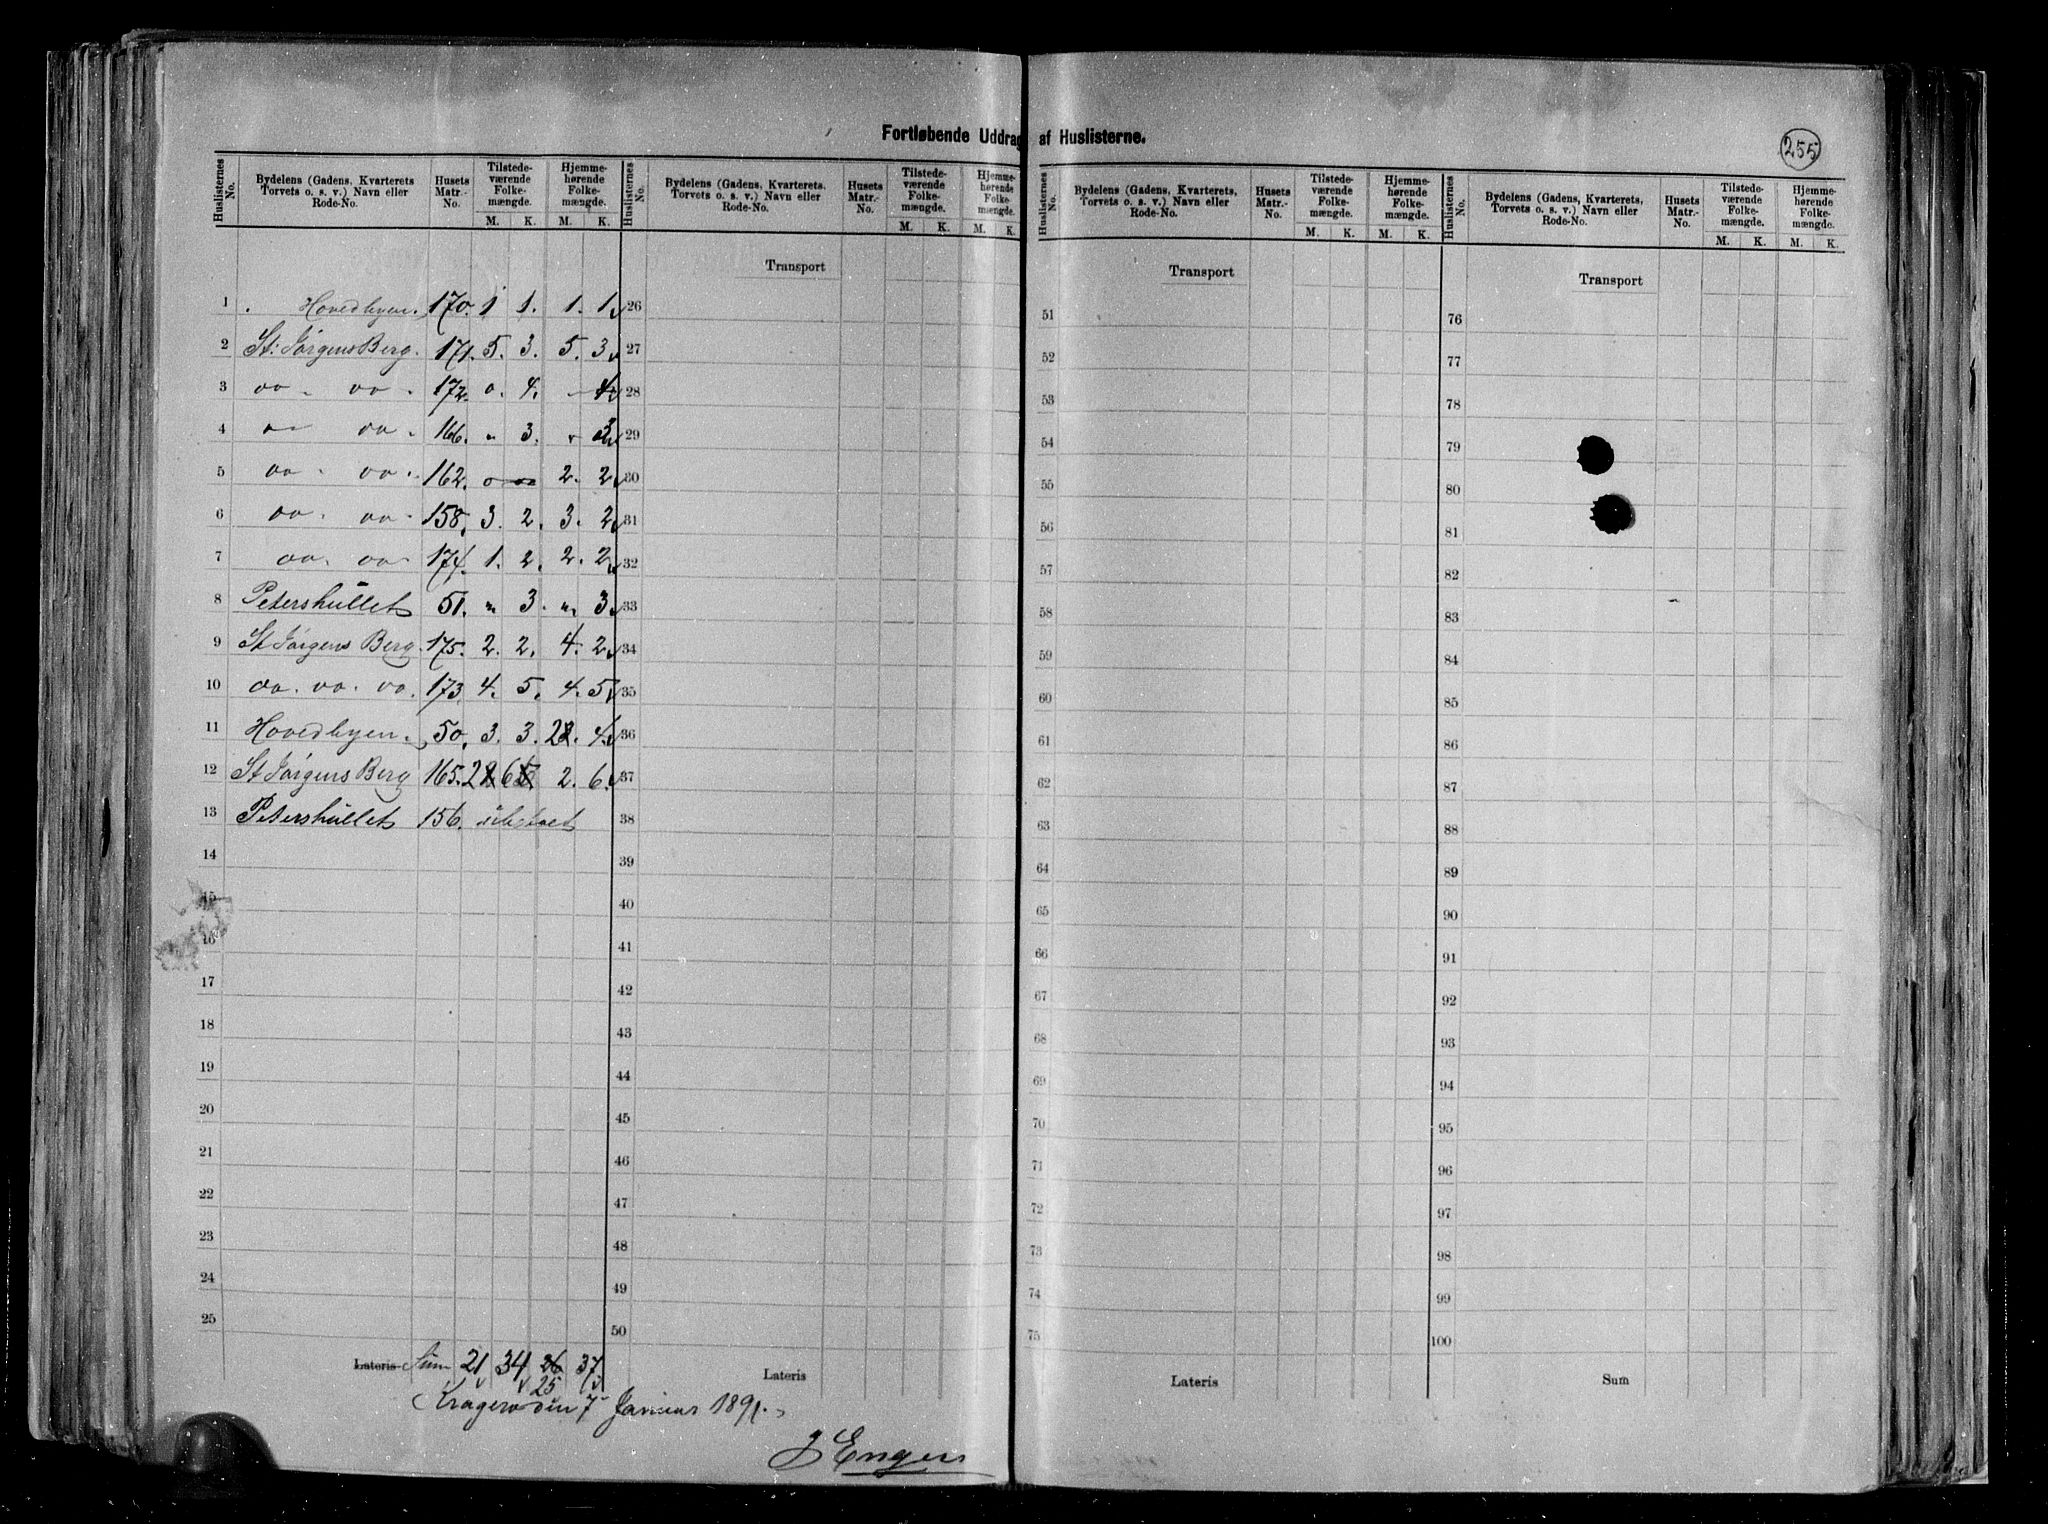 Fortløbende Uddrag af Huslisterne.
255
Huslisternes No. Bydelens (Gadens, Kvarterets Torvets o. s. v.) Navn eller Rode-No. Husets Matr.-No. Tilstede-værende Folke-mængde. M. K. Hjemme-hørende Folke-mængde. M. K.
1 . Hovedbyen. 170. 1 1. 1. 1
2 St: Jörgens Berg. 171. 5. 3. 5. 3.
3 oo - oo . 172. o. 4. - 4
4 o- oo . 166. " 3. " 3
5 oo . oo . 162. o oo 2. 2
6 oo . oo . 158. 3. 2. 3. 2
7 oo. oo 174. 1. 2. 2. 2
8 Petershullet 51. " 3. ". 3
9 St Jörgens Berg. 175. 2. 2. 4. 2
10 oo. oo. oo. 173. 4. 5. 4. 5
11 Hovedbyen. 50. 3. 3. 2 4.
12 St Jörgens Berg 165. 2 6 2. 6.
13 Petershullet 156. ubeboet
14
15
16
17
18
19
20
21
22
23
24
25
Lateris Sum 21 34 26 37
25
Huslisternes No. Bydelens (Gadens, Kvarterets, Torvets o. s. v.) Navn eller Rode-No. Husets Matr.-No. Tilstede-værende Folke-mængde. M. K. Hjemme-hørende Folke-mængde. M. K.
Transport
26
27
28
29
30
31
32
33
34
35
36
37
38
39
40
41
42
43
44
45
46
47
48
49
50
Lateris
Kragerø den 7 Januar 1891.
J Engers
Huslisternes No. Bydelens (Gadens, Kvarterets, Torvets o. s. v.) Navn eller Rode-No. Husets Matr.-No. Tilstede-værende Folke-mængde. M. K. Hjemme-hørende Folke-mængde. M. K.
Transport
51
52
53
54
55
56
57
58
59
60
61
62
63
64
65
66
67
68
69
70
71
72
73
74
75
Lateris
Huslisternes No. Bydelens (Gadens, Kvarterets, Torvets o. s. v.) Navn eller Rode-No. Husets Matr.-No. Tilstede-værende Folke-mængde. M. K. Hjemme-hørende Folke-mængde. M. K.
Transport
76
77
78
79
80
81
82
83
84
85
86
87
88
89
90
91
92
93
94
95
96
97
98
99
100
Sum